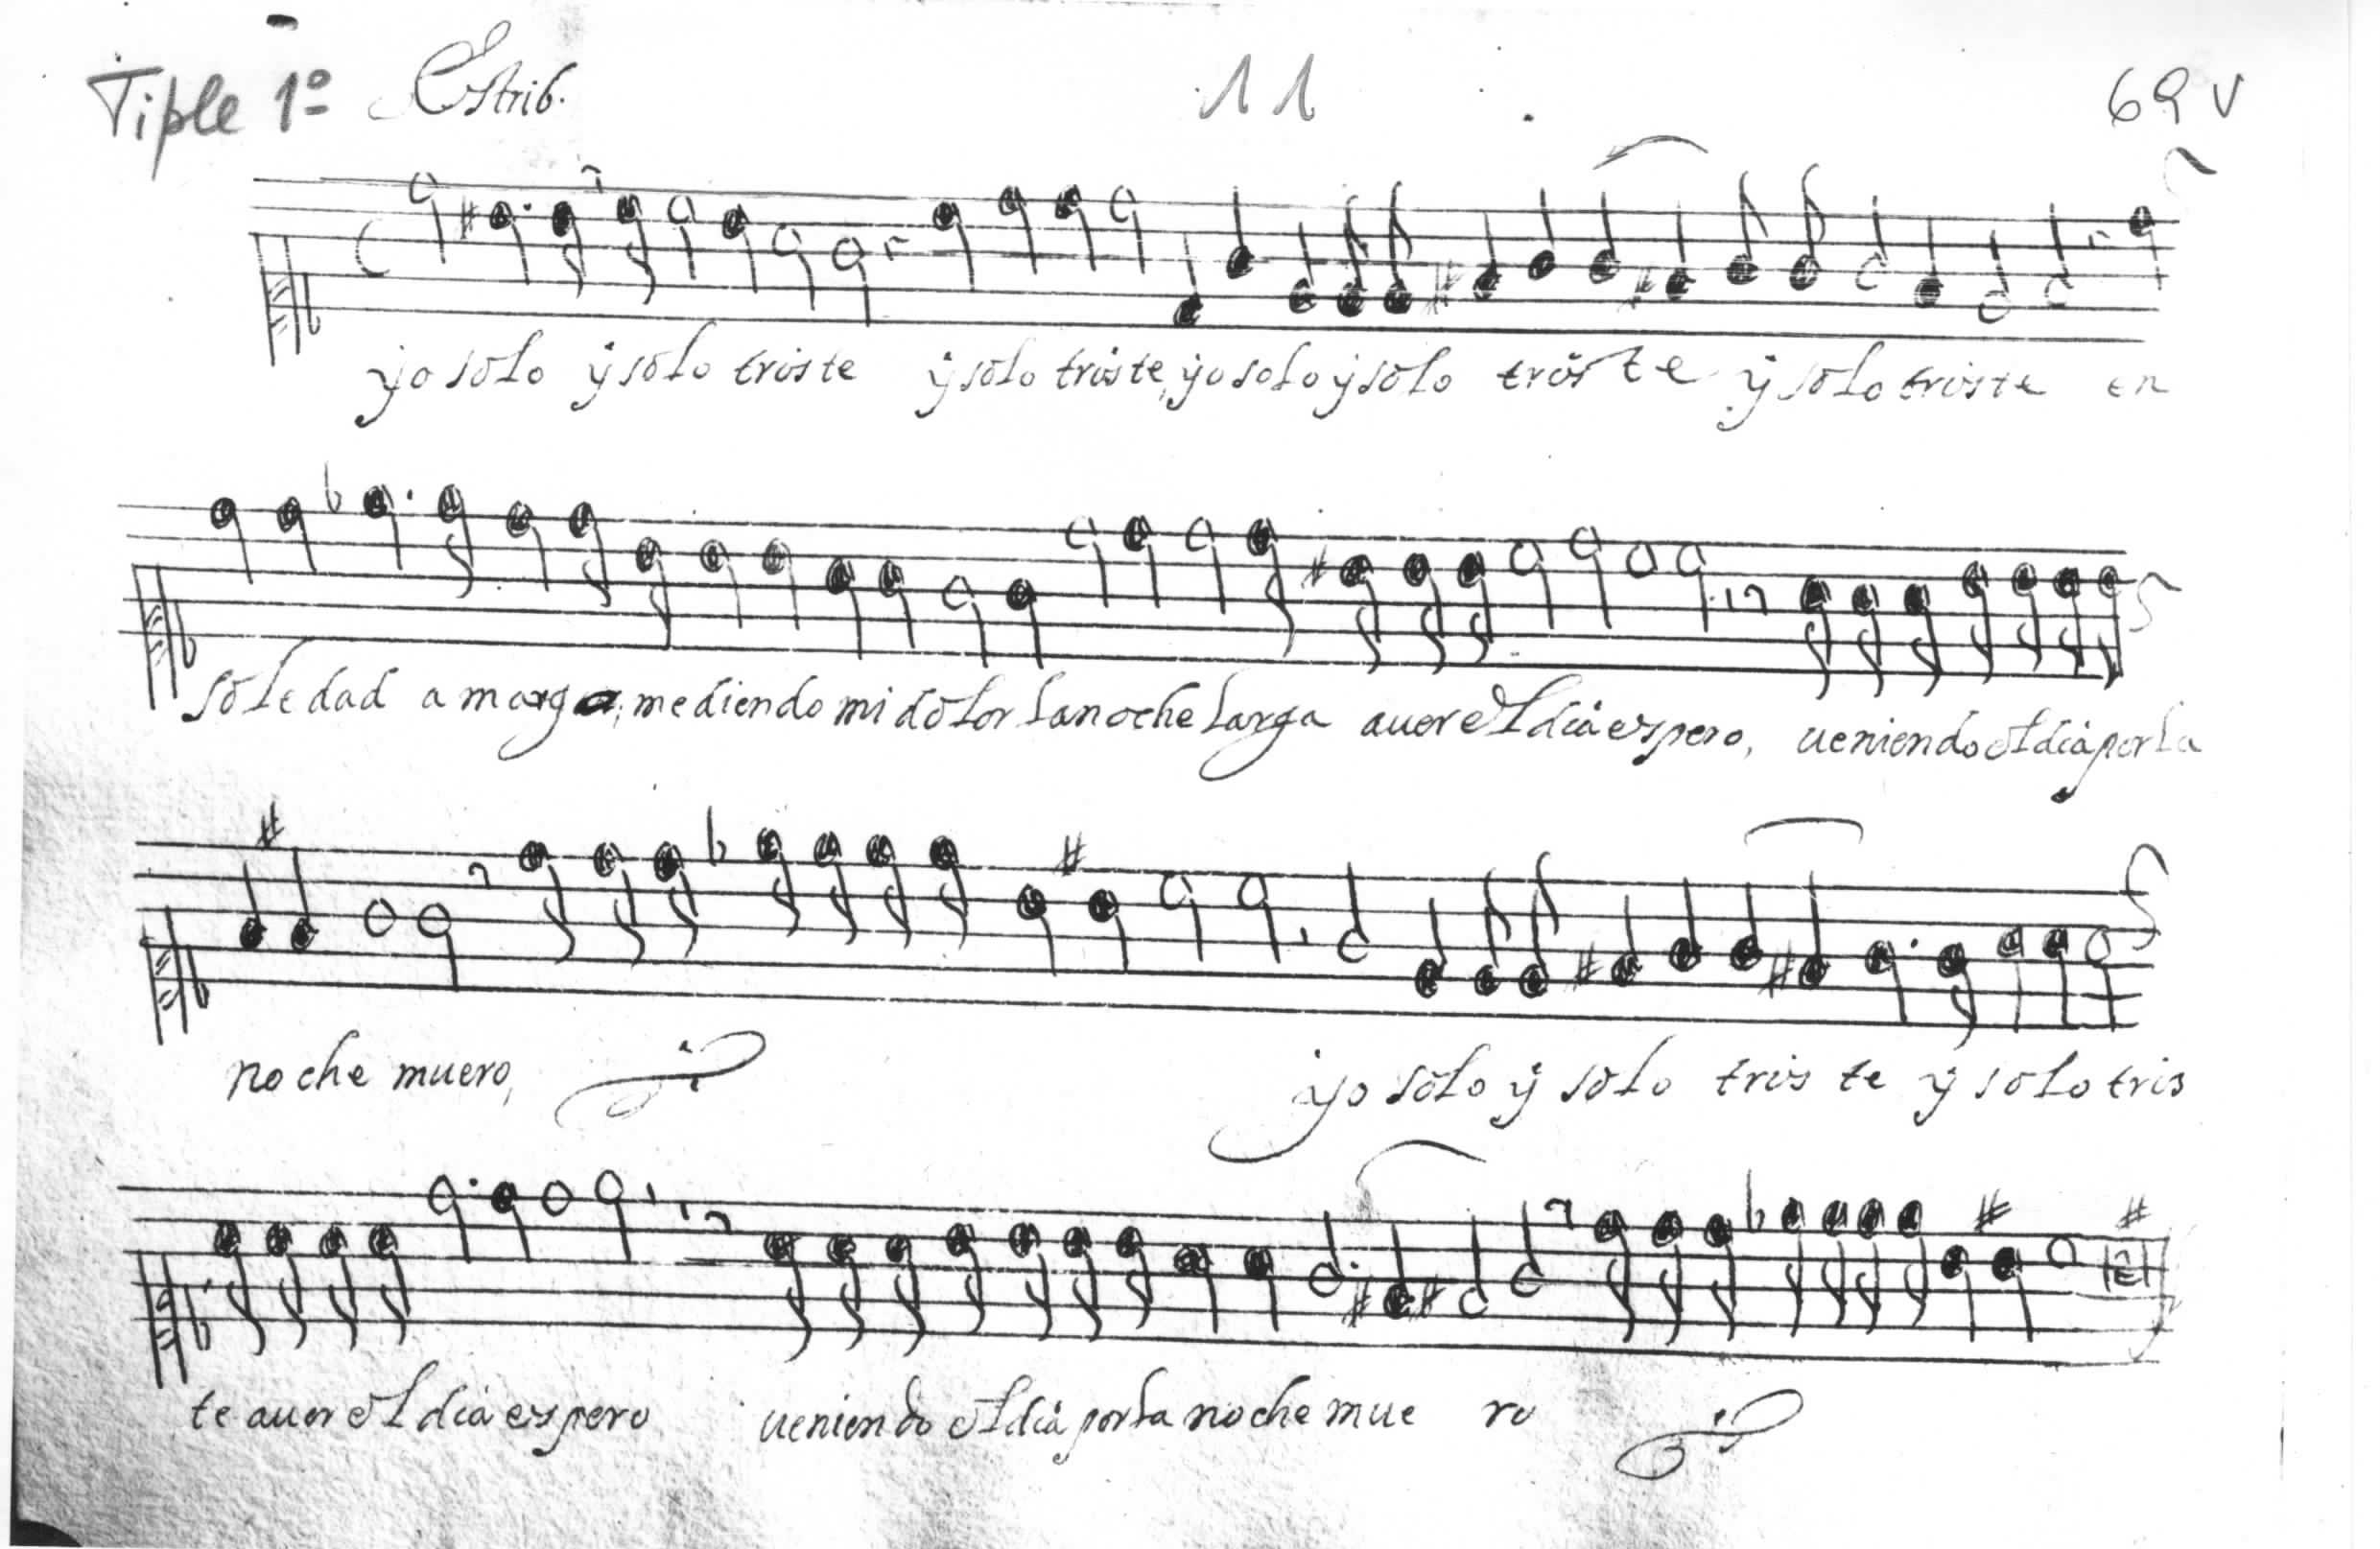 Tiple 1º Estrib. 11 69 v
yo solo y solo triste y solo triste, yo solo y solo triste y solo triste en
soledad amarga, mediendo mi dolor la noche larga a uer el dia espero, ueniendo el dia por la
noche muero, yo solo y solo triste y solo tris
te a uer el dia espero ueniendo el dia por la noche mue ro